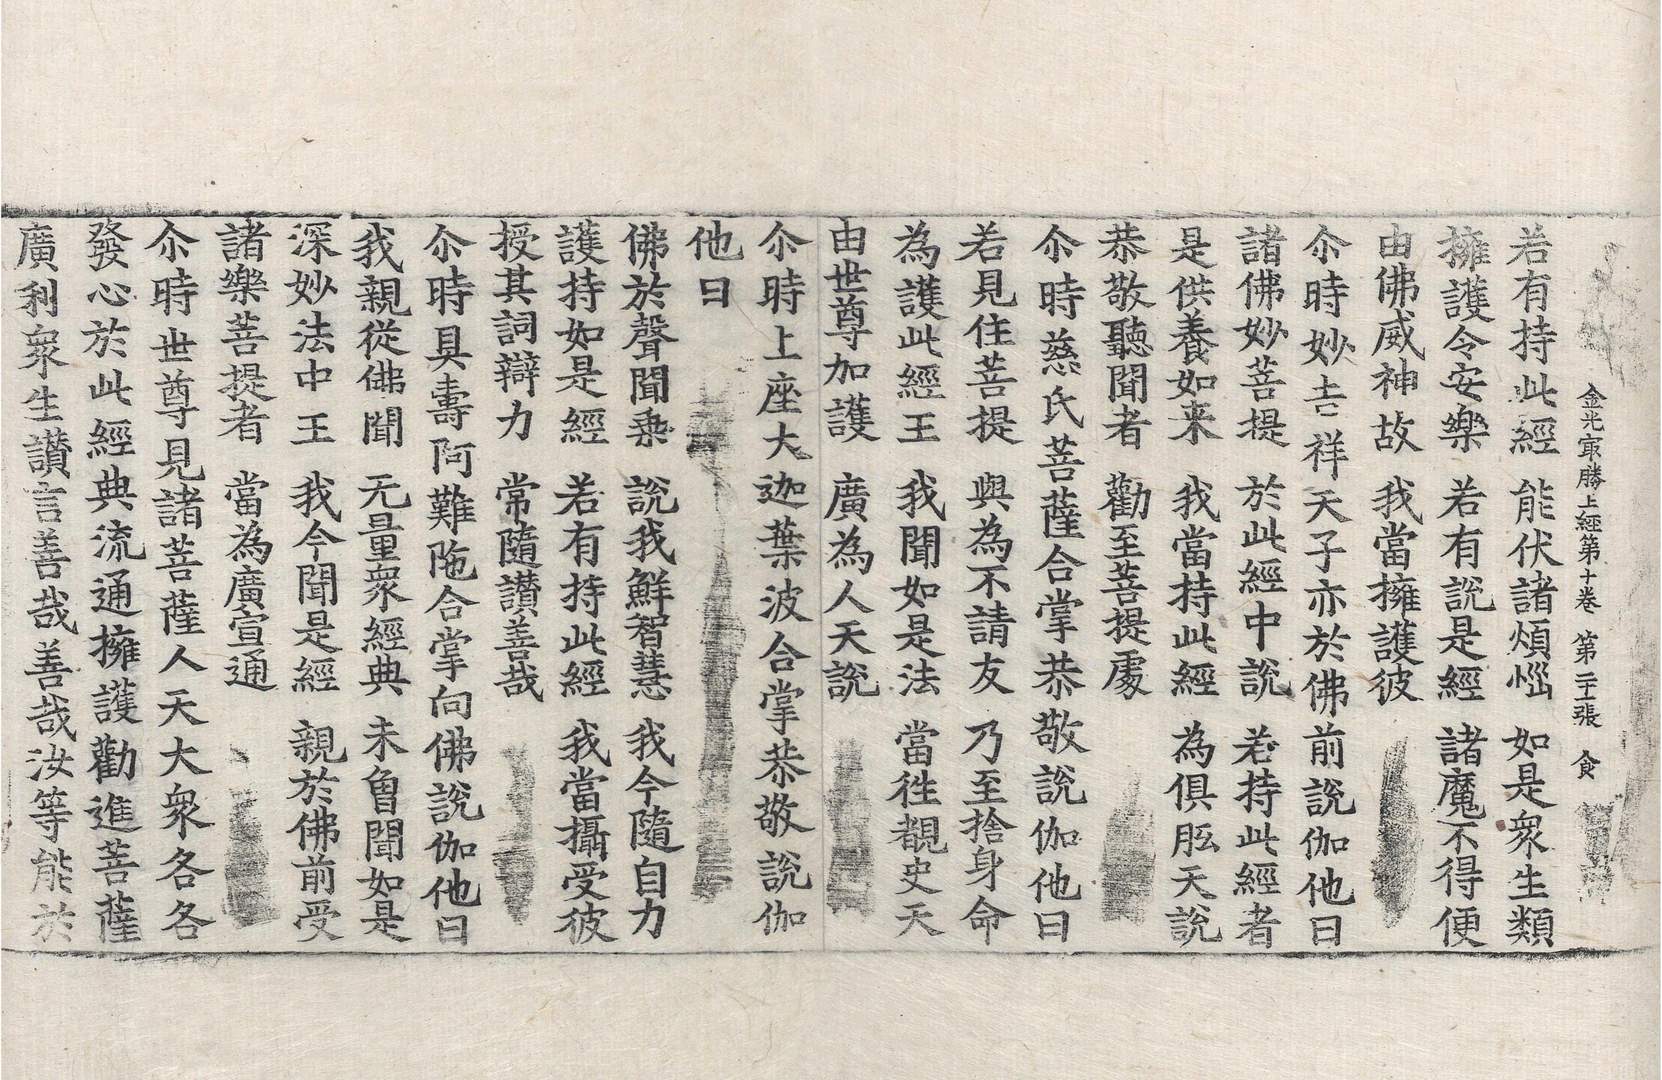 金光㝡勝王經第十卷　第二十張　食
若有持此經　能伏諸煩惱　如是衆生類
擁護令安樂　若有說是經　諸魔不得便
由佛威神故　我當擁護彼
尒時妙吉祥天子亦於佛前說伽他曰
諸佛妙菩提　於此經中說　若持此經者
是供養如来　我當持此經　為俱胝天說
恭敬聽聞者　勸至菩提處
尒時慈氏菩薩合掌恭敬說伽他曰
若見住菩提　與為不請友　乃至捨身命
為護此經王　我聞如是法　當徃覩史天
由世尊加護　廣為人天說
尒時上座大迦葉波合掌恭敬說伽
他曰
佛於聲聞乗　說我鮮智慧　我今隨自力
護持如是經　若有持此經　我當攝受彼
授其詞辯力　常隨讃善哉
尒時具壽阿難陁合掌向佛說伽他曰
我親從佛聞　无量衆經典　未曾聞如是
深妙法中王　我今聞是經　親於佛前受
諸樂菩提者　當為廣宣通
尒時世尊見諸菩薩人天大衆各各
發心於此經典流通擁護勸進菩薩
廣利衆生讃言善哉善哉汝等能於